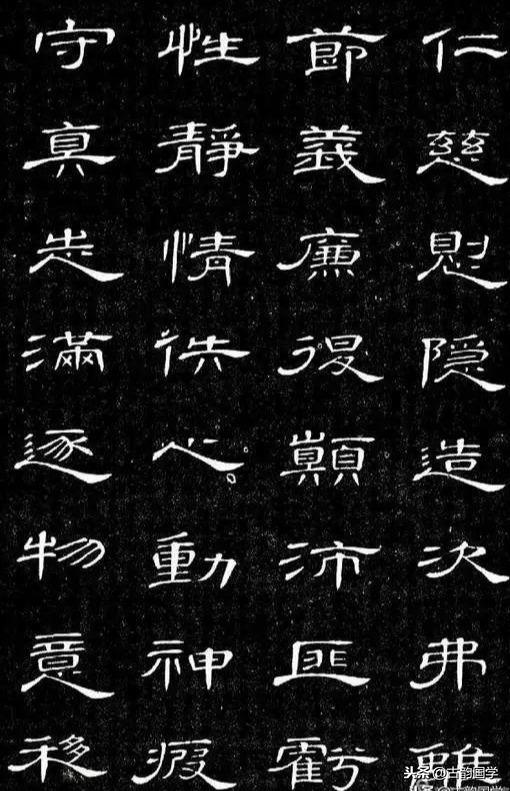 仁慈惻隐造次弗離
節義廉退顛沛匪虧
性靜情佚心動神疲
守真志滿逐物意移
头条 @古韵国学